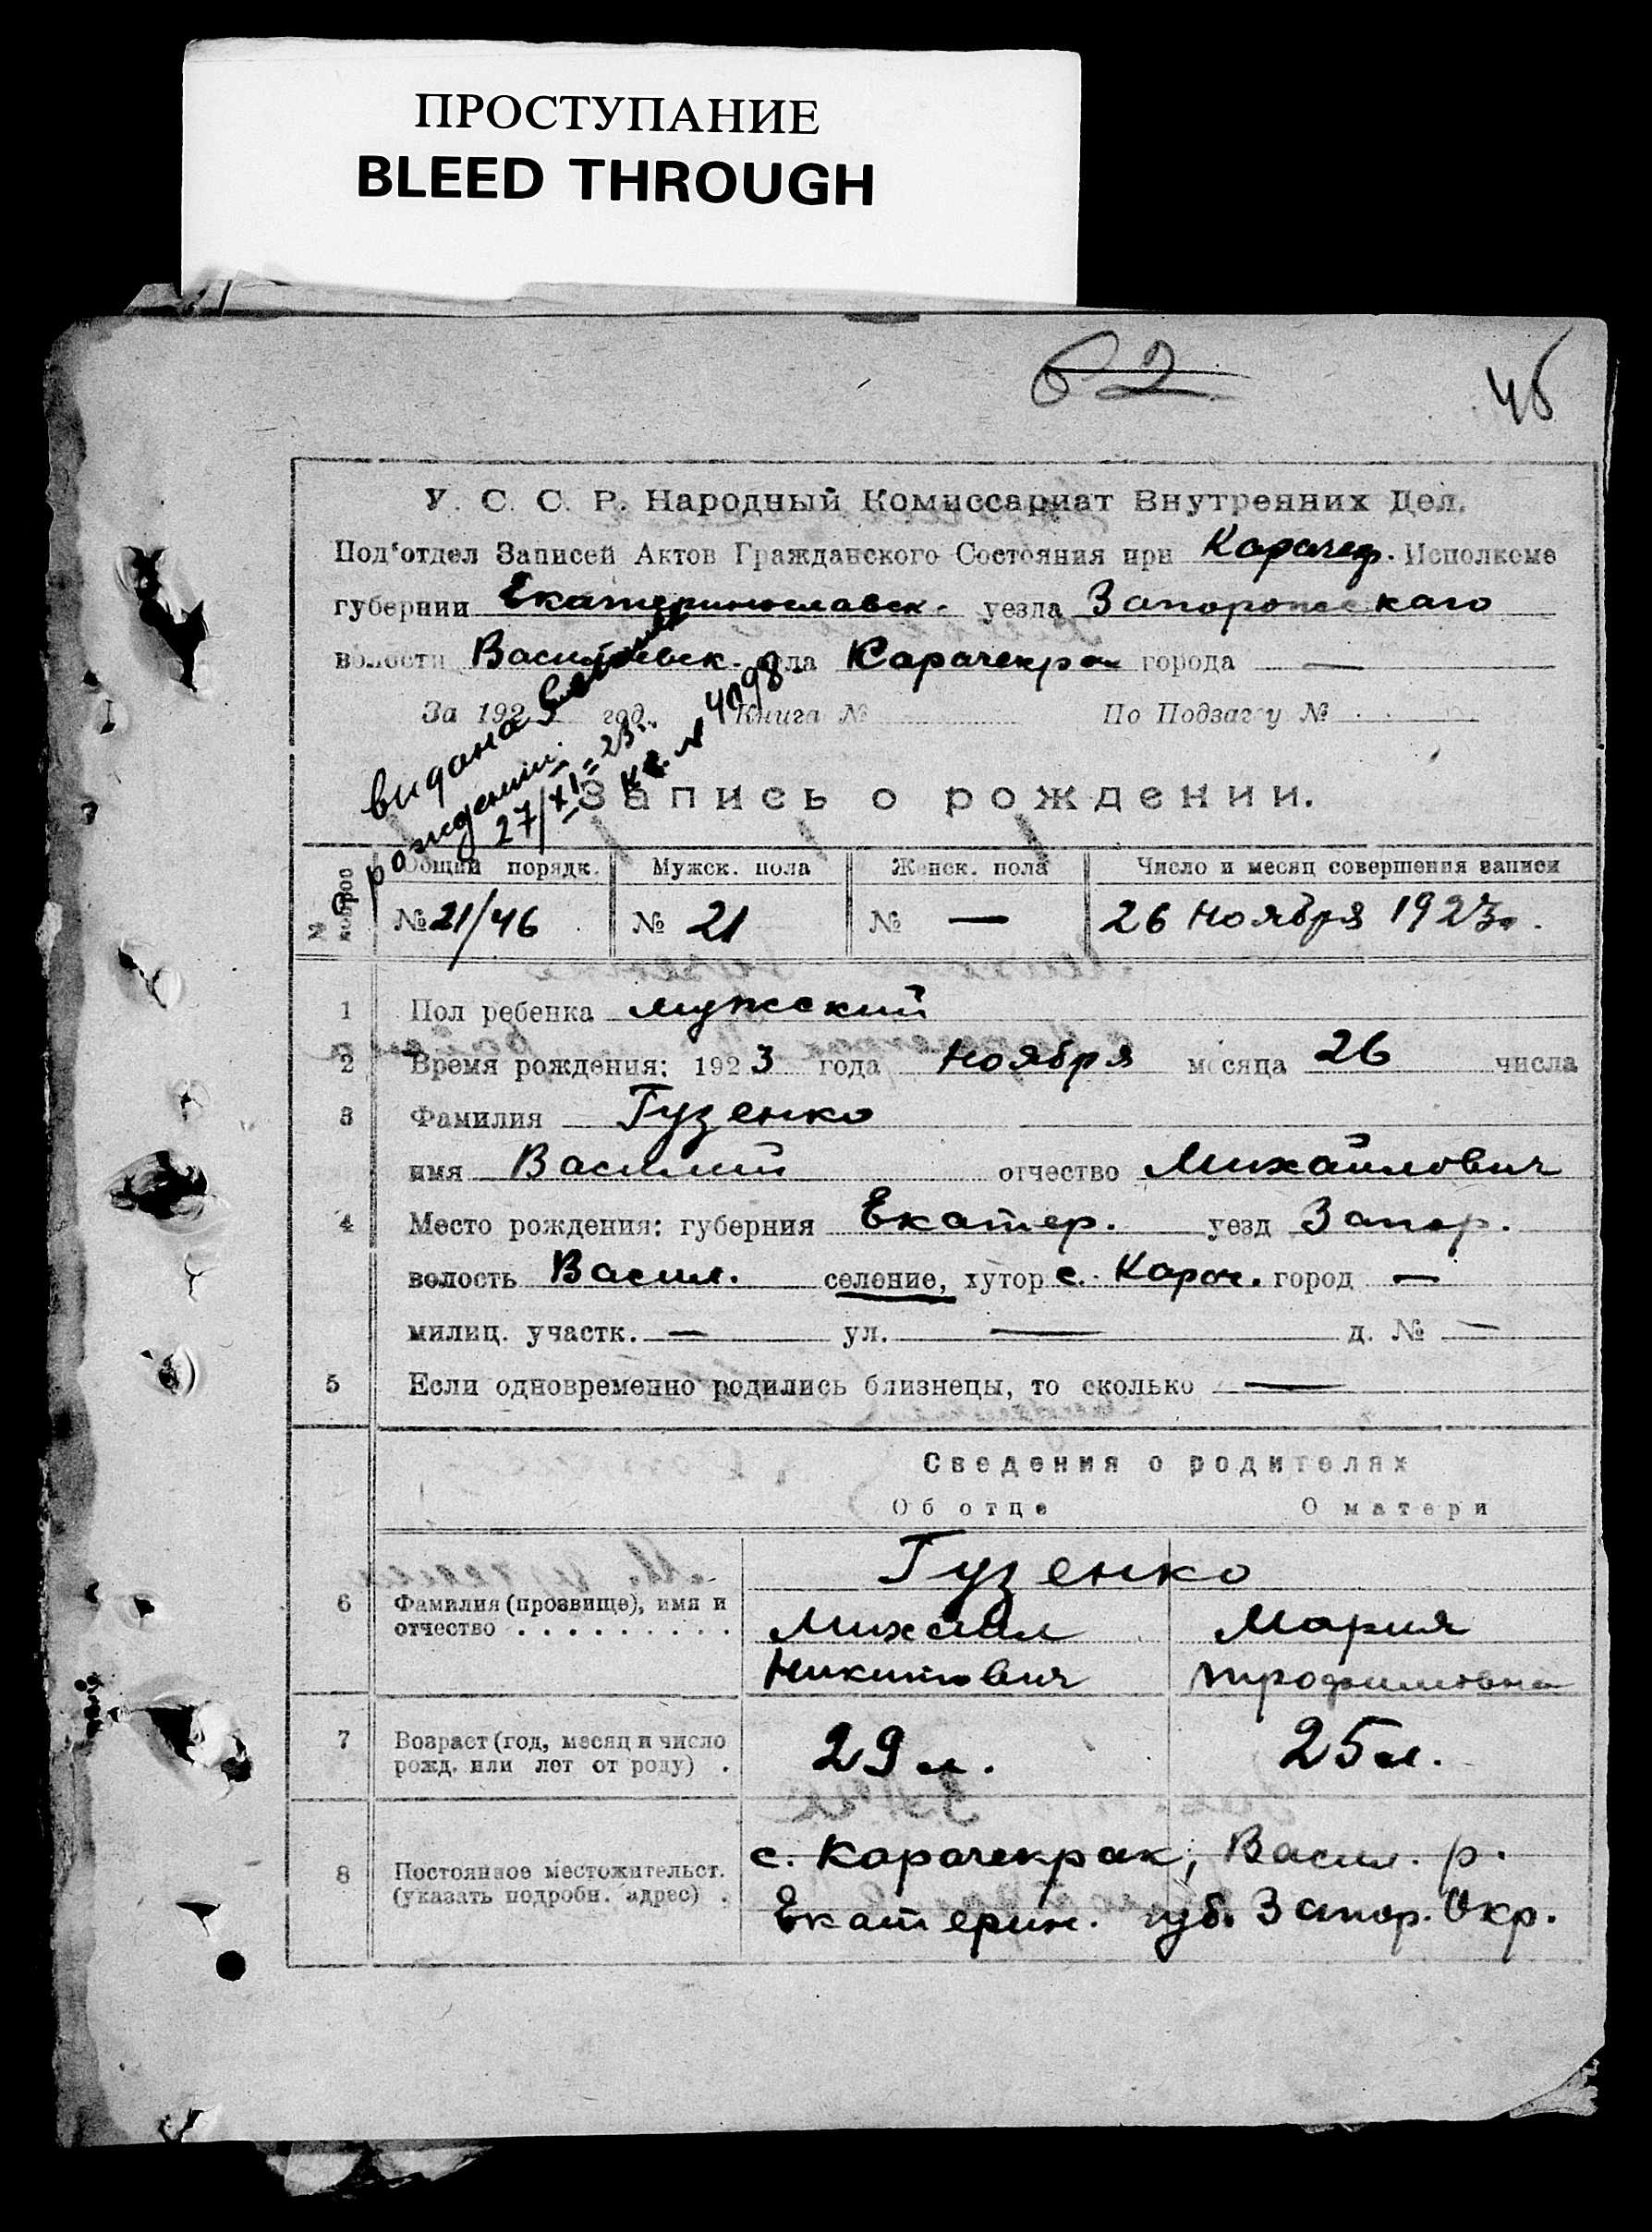 ПРОСТУПАНИЕ
BLEED THROUGH
62
45
У. С. С. Р. Народный Комиссариат Внутренних Дел.
Под'отдел Записей Актов Гражданского Состояния при Исполкоме
губернии Екатеринославск. уезда Запорожскаго
волости Васильевск. села Карачекрак города —
За 192 год. Книга № По Подзагсу №
видана
рождении
27/XI-23г.
кв. № 4098
Запись о рождении.
Общий порядк. Мужск. пола Женск. пола Число и месяц совершения записи
№ 21/46 № 21 № — 26 Ноября 1923г.
1 Пол ребенка мужский
2 Время рождения: 1923 года Ноября месяца 26 числа
3 Фамилия Гузенко
имя Василий отчество Михайлович
4 Место рождения: губерния Екатер. уезд Запор.
волость Васил. селение, хутор с. Карач. город —
милиц. участк. — ул. — д. № —
5 Если одновременно родились близнецы, то сколько —
Сведения о родителях
Об отце О матери
Гузенко
6 Фамилия (прозвище), имя и отчество . . . . . . . . . Михаил Мария
Никитович Трофимовна
7 Возраст (год, месяц и число рожд. или лет от роду) . 29 л. 25 л.
8 Постоянное местожительст. (указать подробн. адрес) . с. Карачекрак, Васил. р.
Екатерин. губ. Запор. Окр.